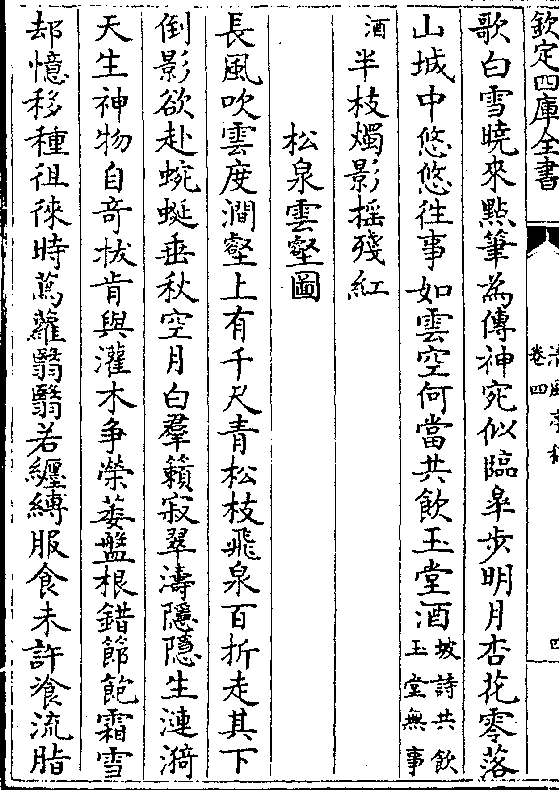 欽定四庫全書
卷四
四
歌白雪曉來點筆為傳神宛似臨臯步明月杏花零落
山城中悠悠往事如雲空何當共飲玉堂酒坡詩共飲玉堂無事
酒半枝燭影揺殘紅
松泉雲壑圖
長風吹雲度澗壑上有千尺青松枝飛泉百折走其下
倒影欲赴蜿蜒垂秋空月白羣籟寂翠濤隱隱生漣漪
天生神物自奇㧞肯與灌木争榮萎盤根錯節飽霜雪
却憶移種徂徠時蔦蘿翳翳若纒縛服食未許飡流脂